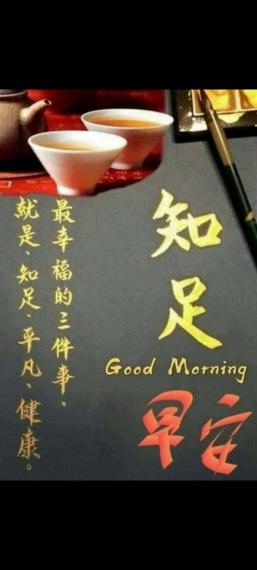 知足
Good Morning
早安
最幸福的三件事、
就是、知足、平凡、健康。